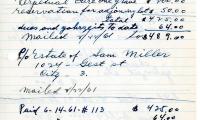 Perpetual Care one grave $ 100.00
reservation for adjoining lot $ 50.00
Total $ 425.00
dues and gohrzeit to date 64.00
Mailed 4/24/61 to $489.00
P/o Estate of Sam Miller
1024 - Gest st
City - 3.
mailed 5/22/61
Paid 6-14-61 # 113 $ 425.00
64.00